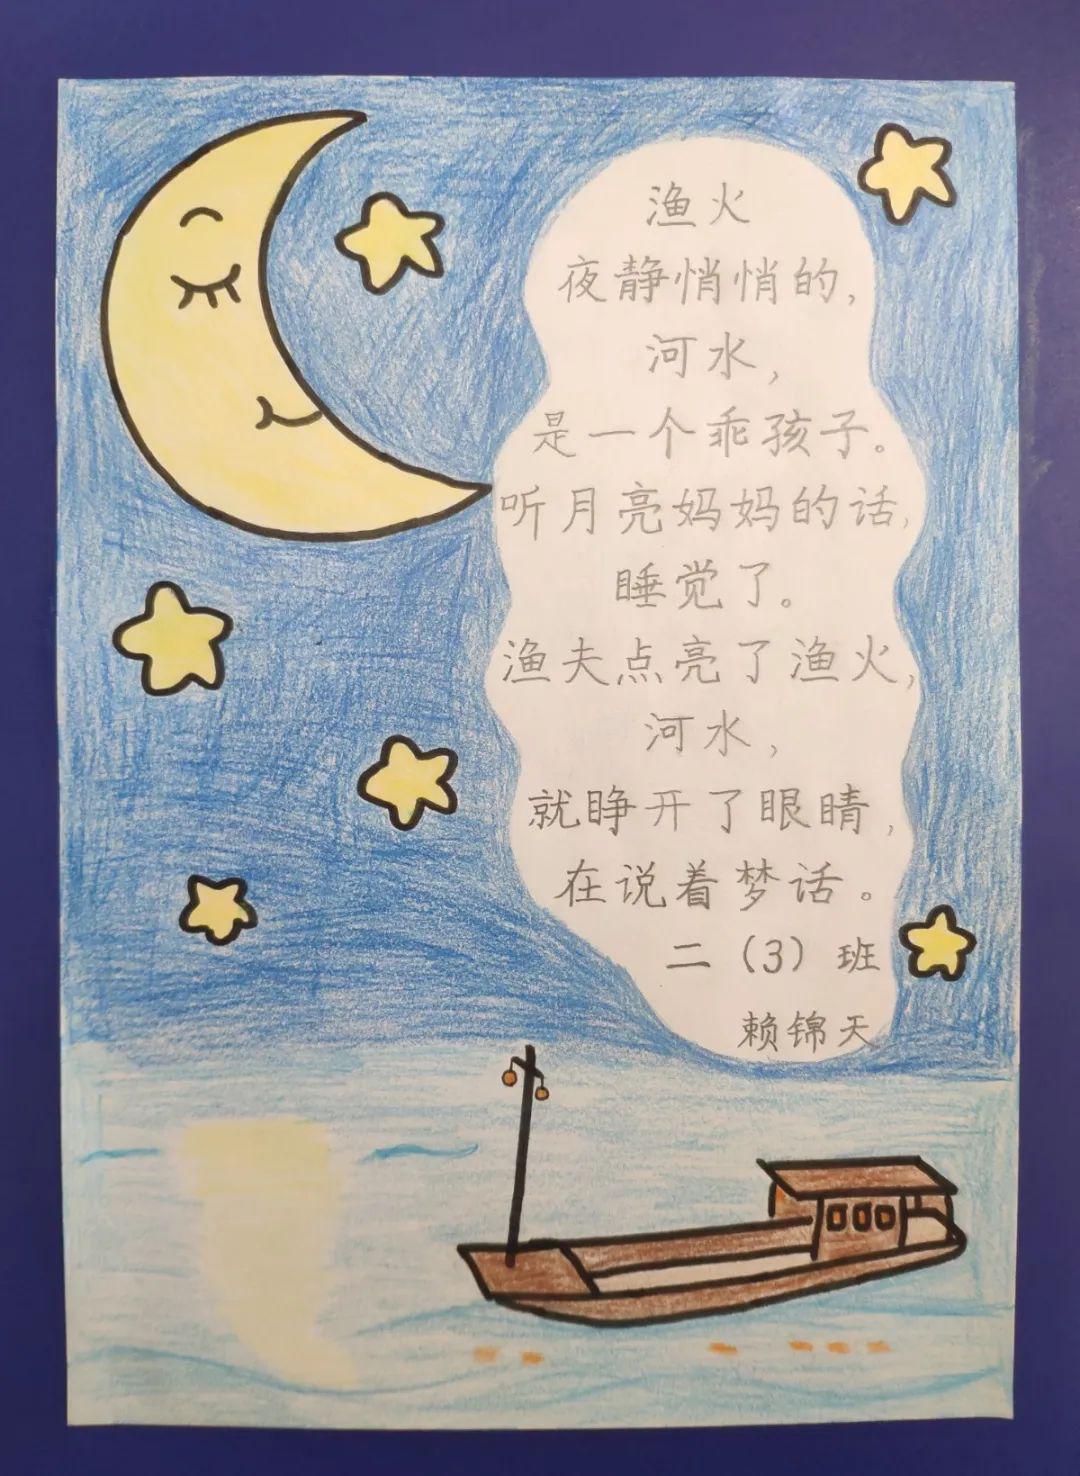 渔火
夜静悄悄的，
河水，
是一个乖孩子。
听月亮妈妈的话，
睡觉了。
渔夫点亮了渔火，
河水，
就睁开了眼睛，
在说着梦话。
二（3）班
赖锦天